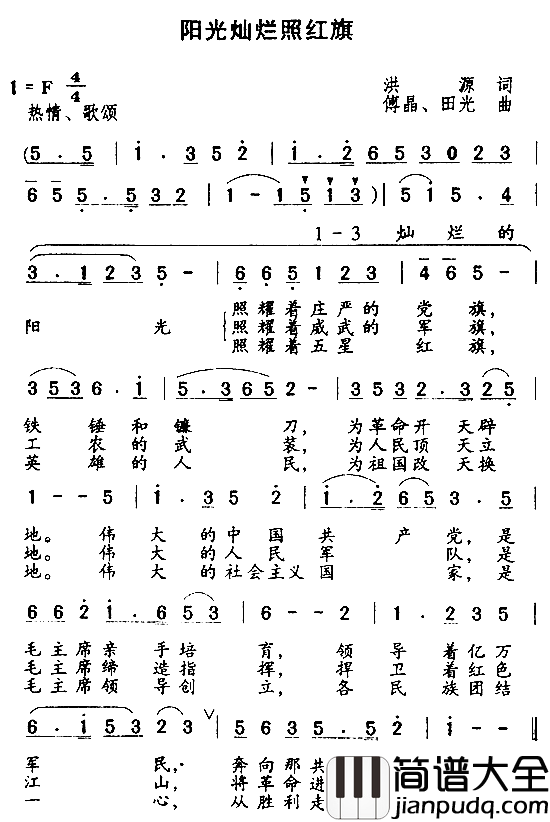 阳光灿烂照红旗
1=F 4/4
洪源 词
热情、歌颂
傅晶、田光 曲
(5．5 | 1．35 2 | 1．2 653 023 |
65 5．532 | 1-1 513) | 51 5．4 |
1-3 灿烂的
3．123 5- | 665 123 | 465- |
照耀着庄严的党旗，
阳光 照耀着威武的军旗，
照耀着五星红旗，
3536．1 | 5．3652- | 3532．325 |
铁锤和镰刀，为革命开天辟
工农的武装，为人民顶天立
英雄的人民，为祖国改天换
1--5 | 1．35 2 | 1．2653．5 |
地。伟大的中国共产党，是
地。伟大的人民军队，是
地。伟大的社会主义国家，是
6621．653 | 6--12 | 3．235 |
毛主席亲手培育，领导着亿万
毛主席缔造指挥，捍卫着红色
毛主席领导创立，各民族团结
6．153 23 ∨
军民，奔向那共
江山，将革命进
一心，从胜利走
简谱大全
jianpudq.com